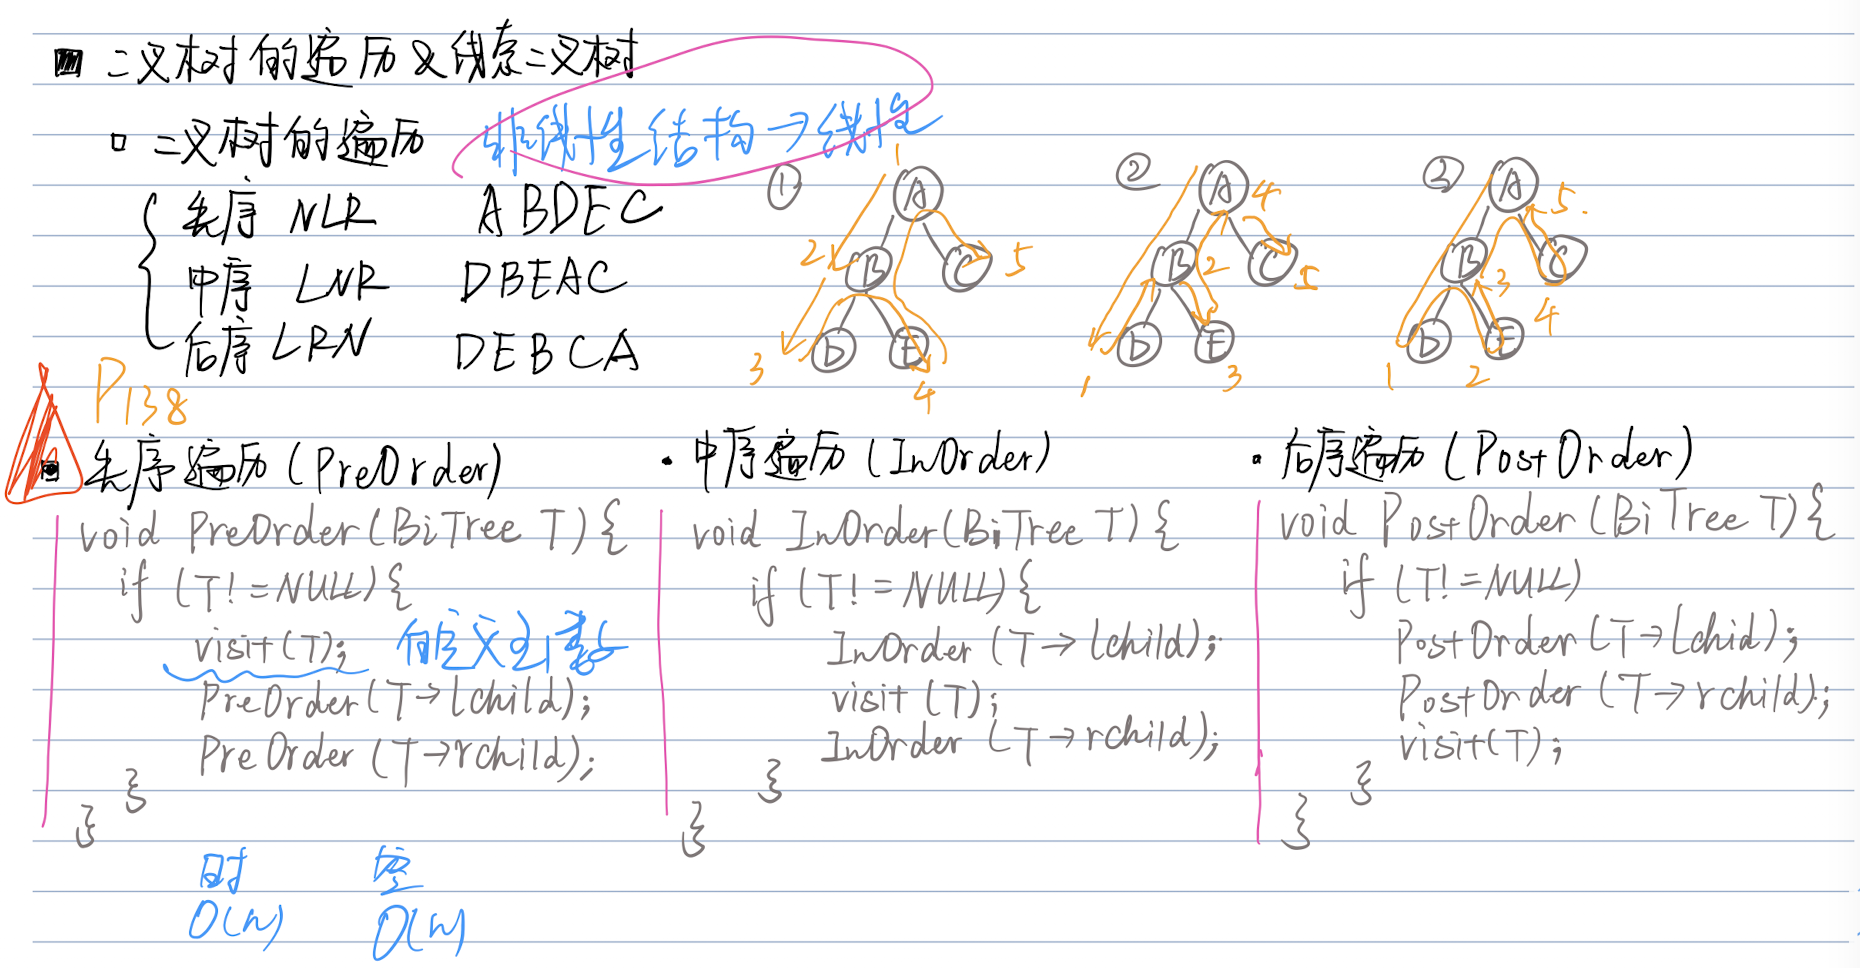 二叉树的遍历及线索二叉树
二叉树的遍历 非线性结构→线性
先序 NLR ABDEC
中序 LNR DBEAC
后序 LRN DEBCA
① A B C D E 1 2 3 4 5
② A B C D E 1 2 3 4 5
③ A B C D E 1 2 3 4 5
P138
先序遍历(PreOrder)
void PreOrder(BiTree T){
if (T!=NULL){
visit(T); 自定义函数
PreOrder(T→lchild);
PreOrder(T→rchild);
}
}
时 空
O(n) O(n)
· 中序遍历(InOrder)
void InOrder(BiTree T){
if (T!=NULL){
InOrder(T→lchild);
visit(T);
InOrder(T→rchild);
}
}
· 后序遍历(PostOrder)
void PostOrder(BiTree T){
if (T!=NULL)
PostOrder(T→lchid);
PostOrder(T→rchild);
visit(T);
}
}